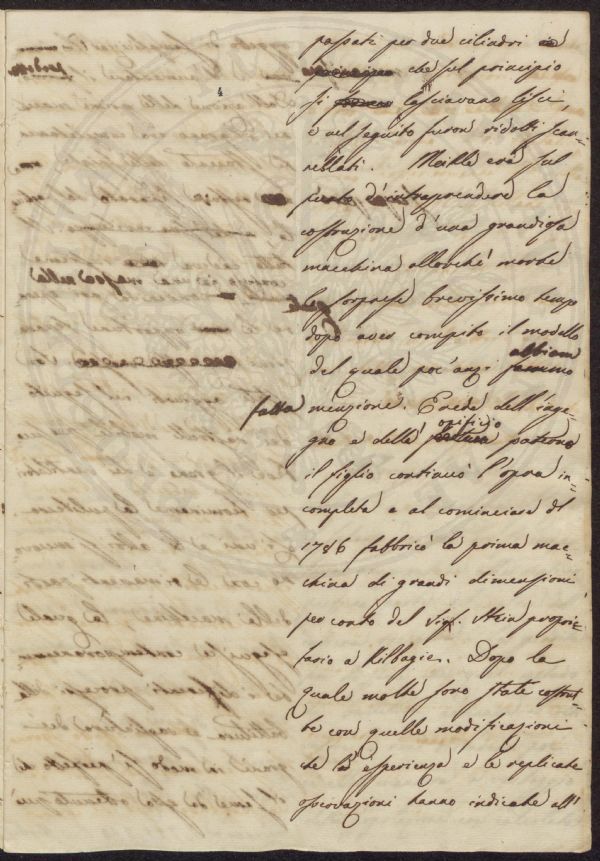 passati per due cilindri
che sul principio
si lasciavano lisci,
e nel seguito furon ridotti scan=
nellati. Meikle era sul
punto d'intraprendere la
costruzione d'una grandiosa
macchina allorché morte
lo sorprese brevissimo tempo
dopo aver compito il modello
del quale poc'anzi abbiam
fatta menzione. Erede dell'inge=
gno e delle patrone
il figlio continuò l'opra in=
completa e al cominciare del
1786 fabbricò la prima mac=
china di grandi dimensioni
per conto del Sig. Stein propri=
tario a Kilbagie. Dopo la
quale molte sono state costrui=
te con quelle modificazioni
che la esperienza e le replicate
osservazioni hanno indicate all'